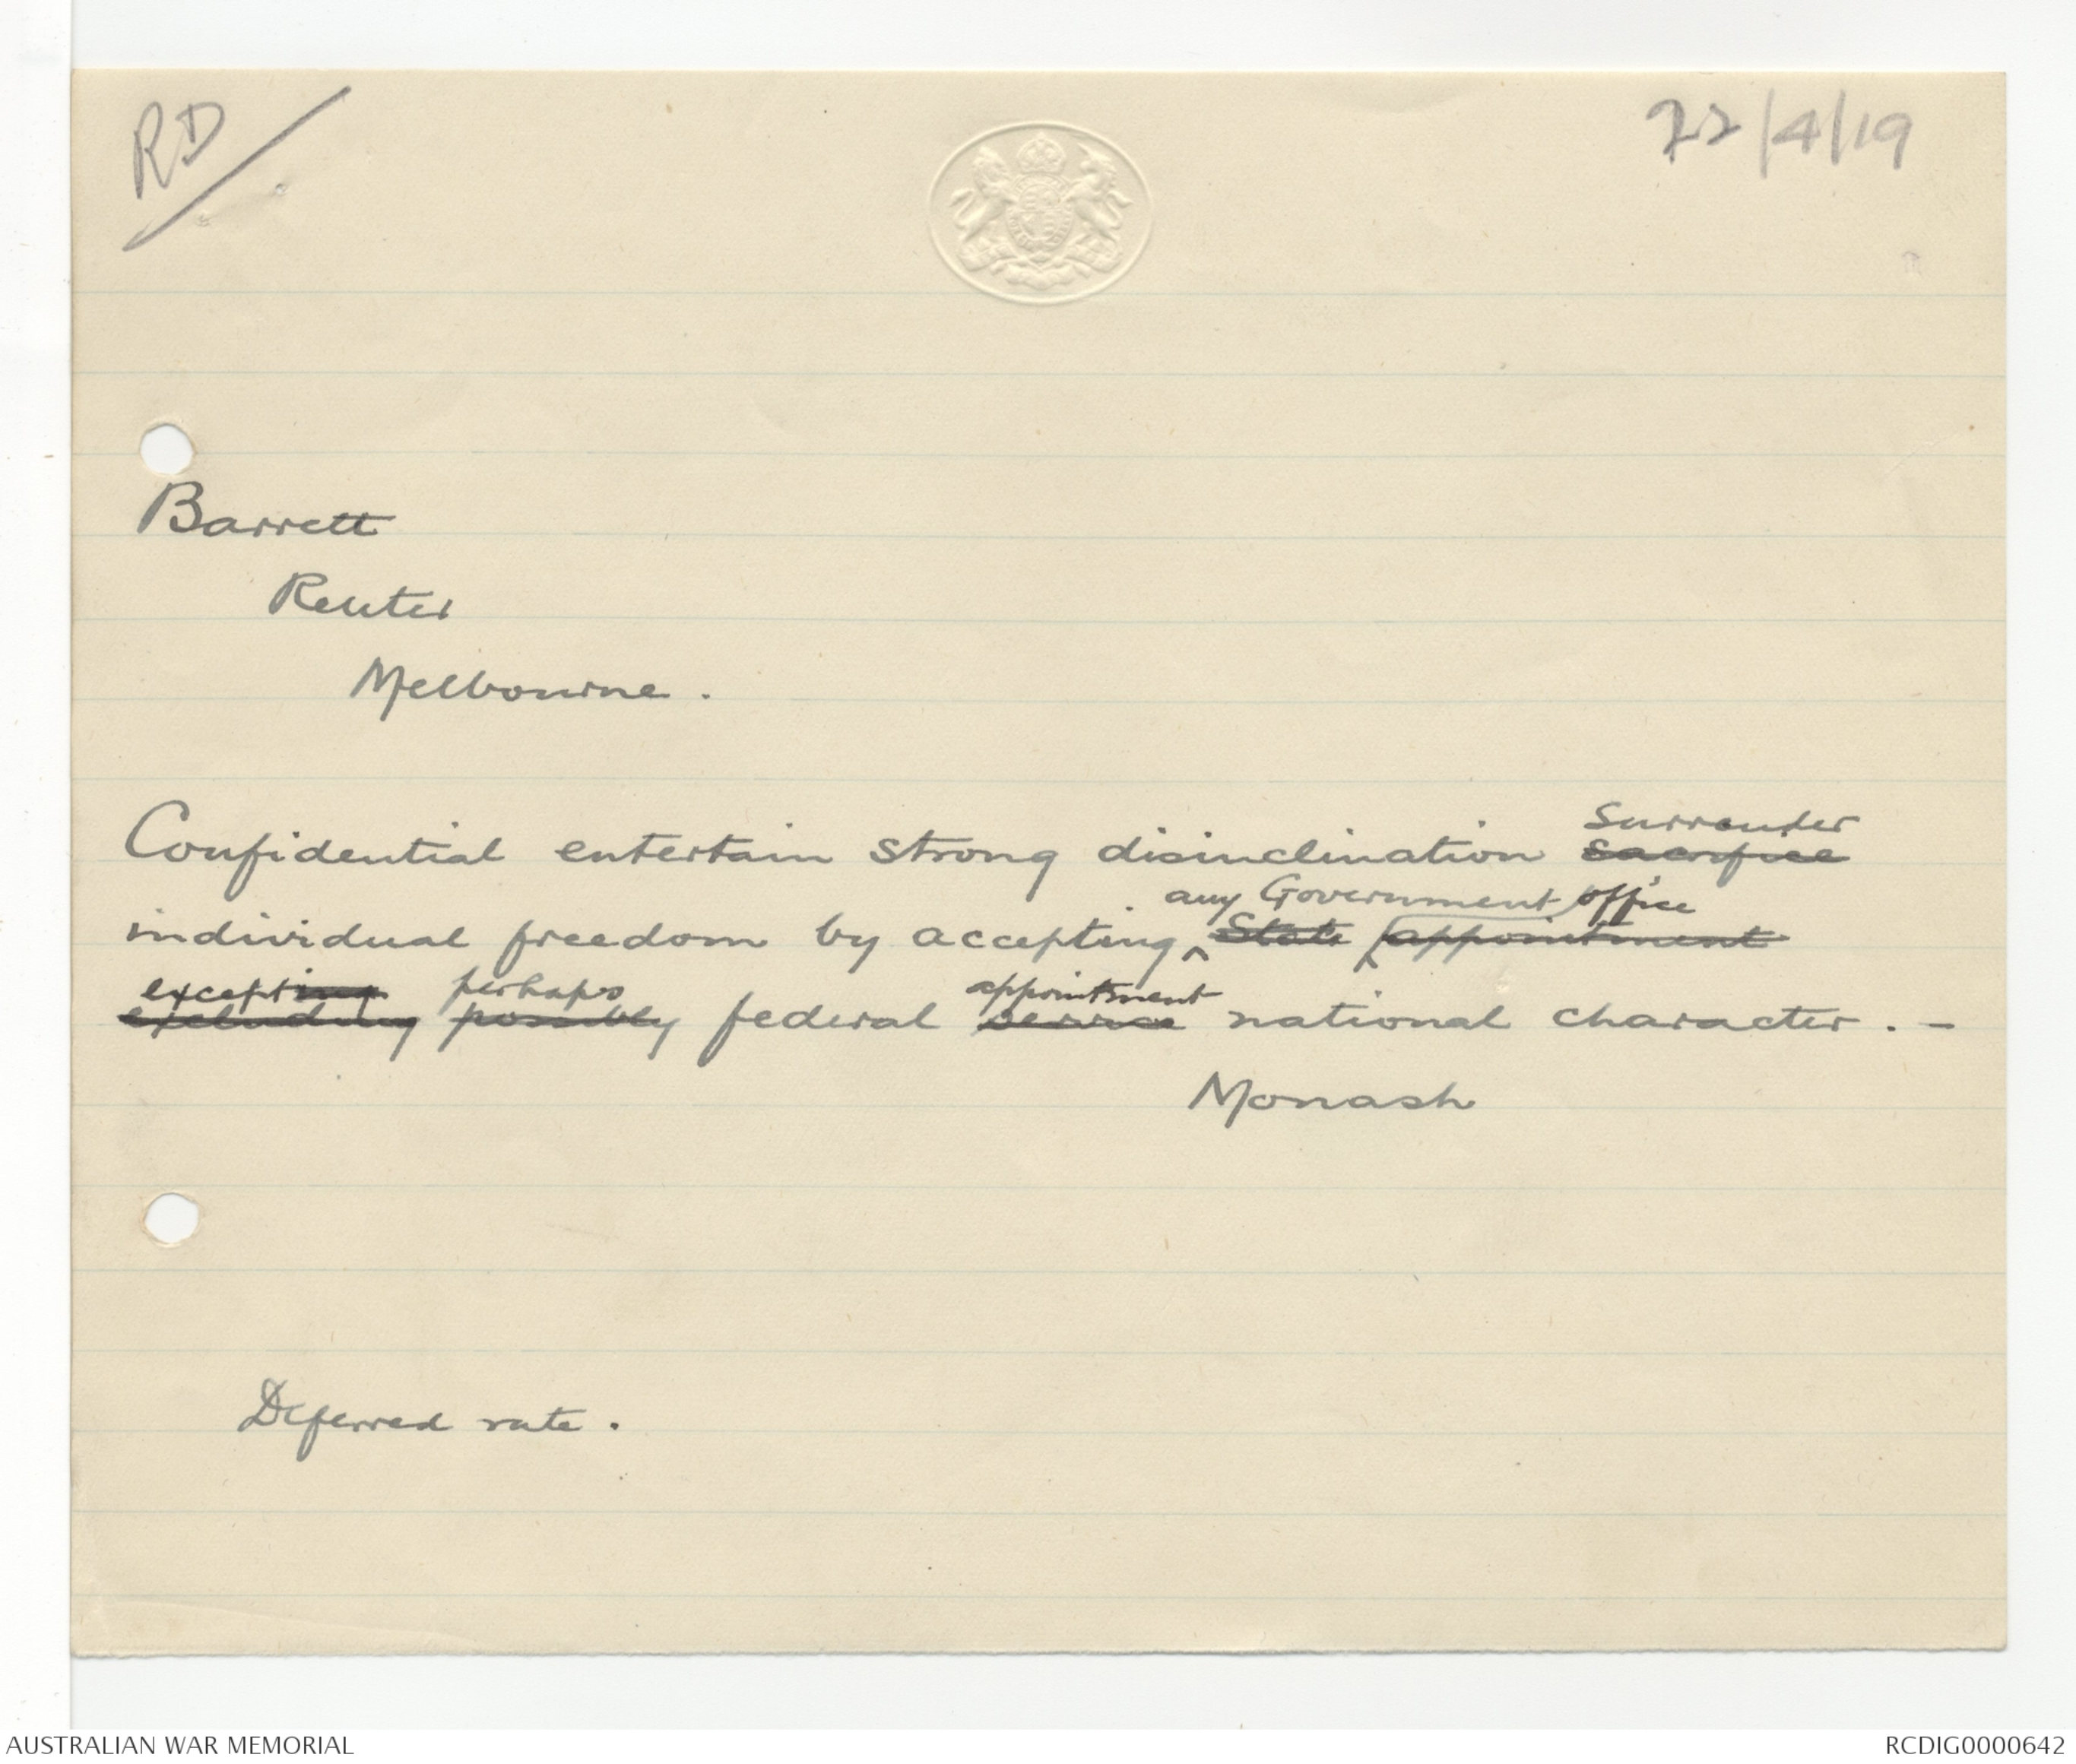 RD
22/4/19
Barrett
Reuter
Melbourne.
surrender
Confidential entertain strong disinclination sacrifice
any Government office
individual freedom by accepting ^ State appointment
excepting perhaps appointment
excluding possibly federal service national character. -
Monash
Deferred rate.
AUSTRALIAN WAR MEMORIAL
RCDIG0000642